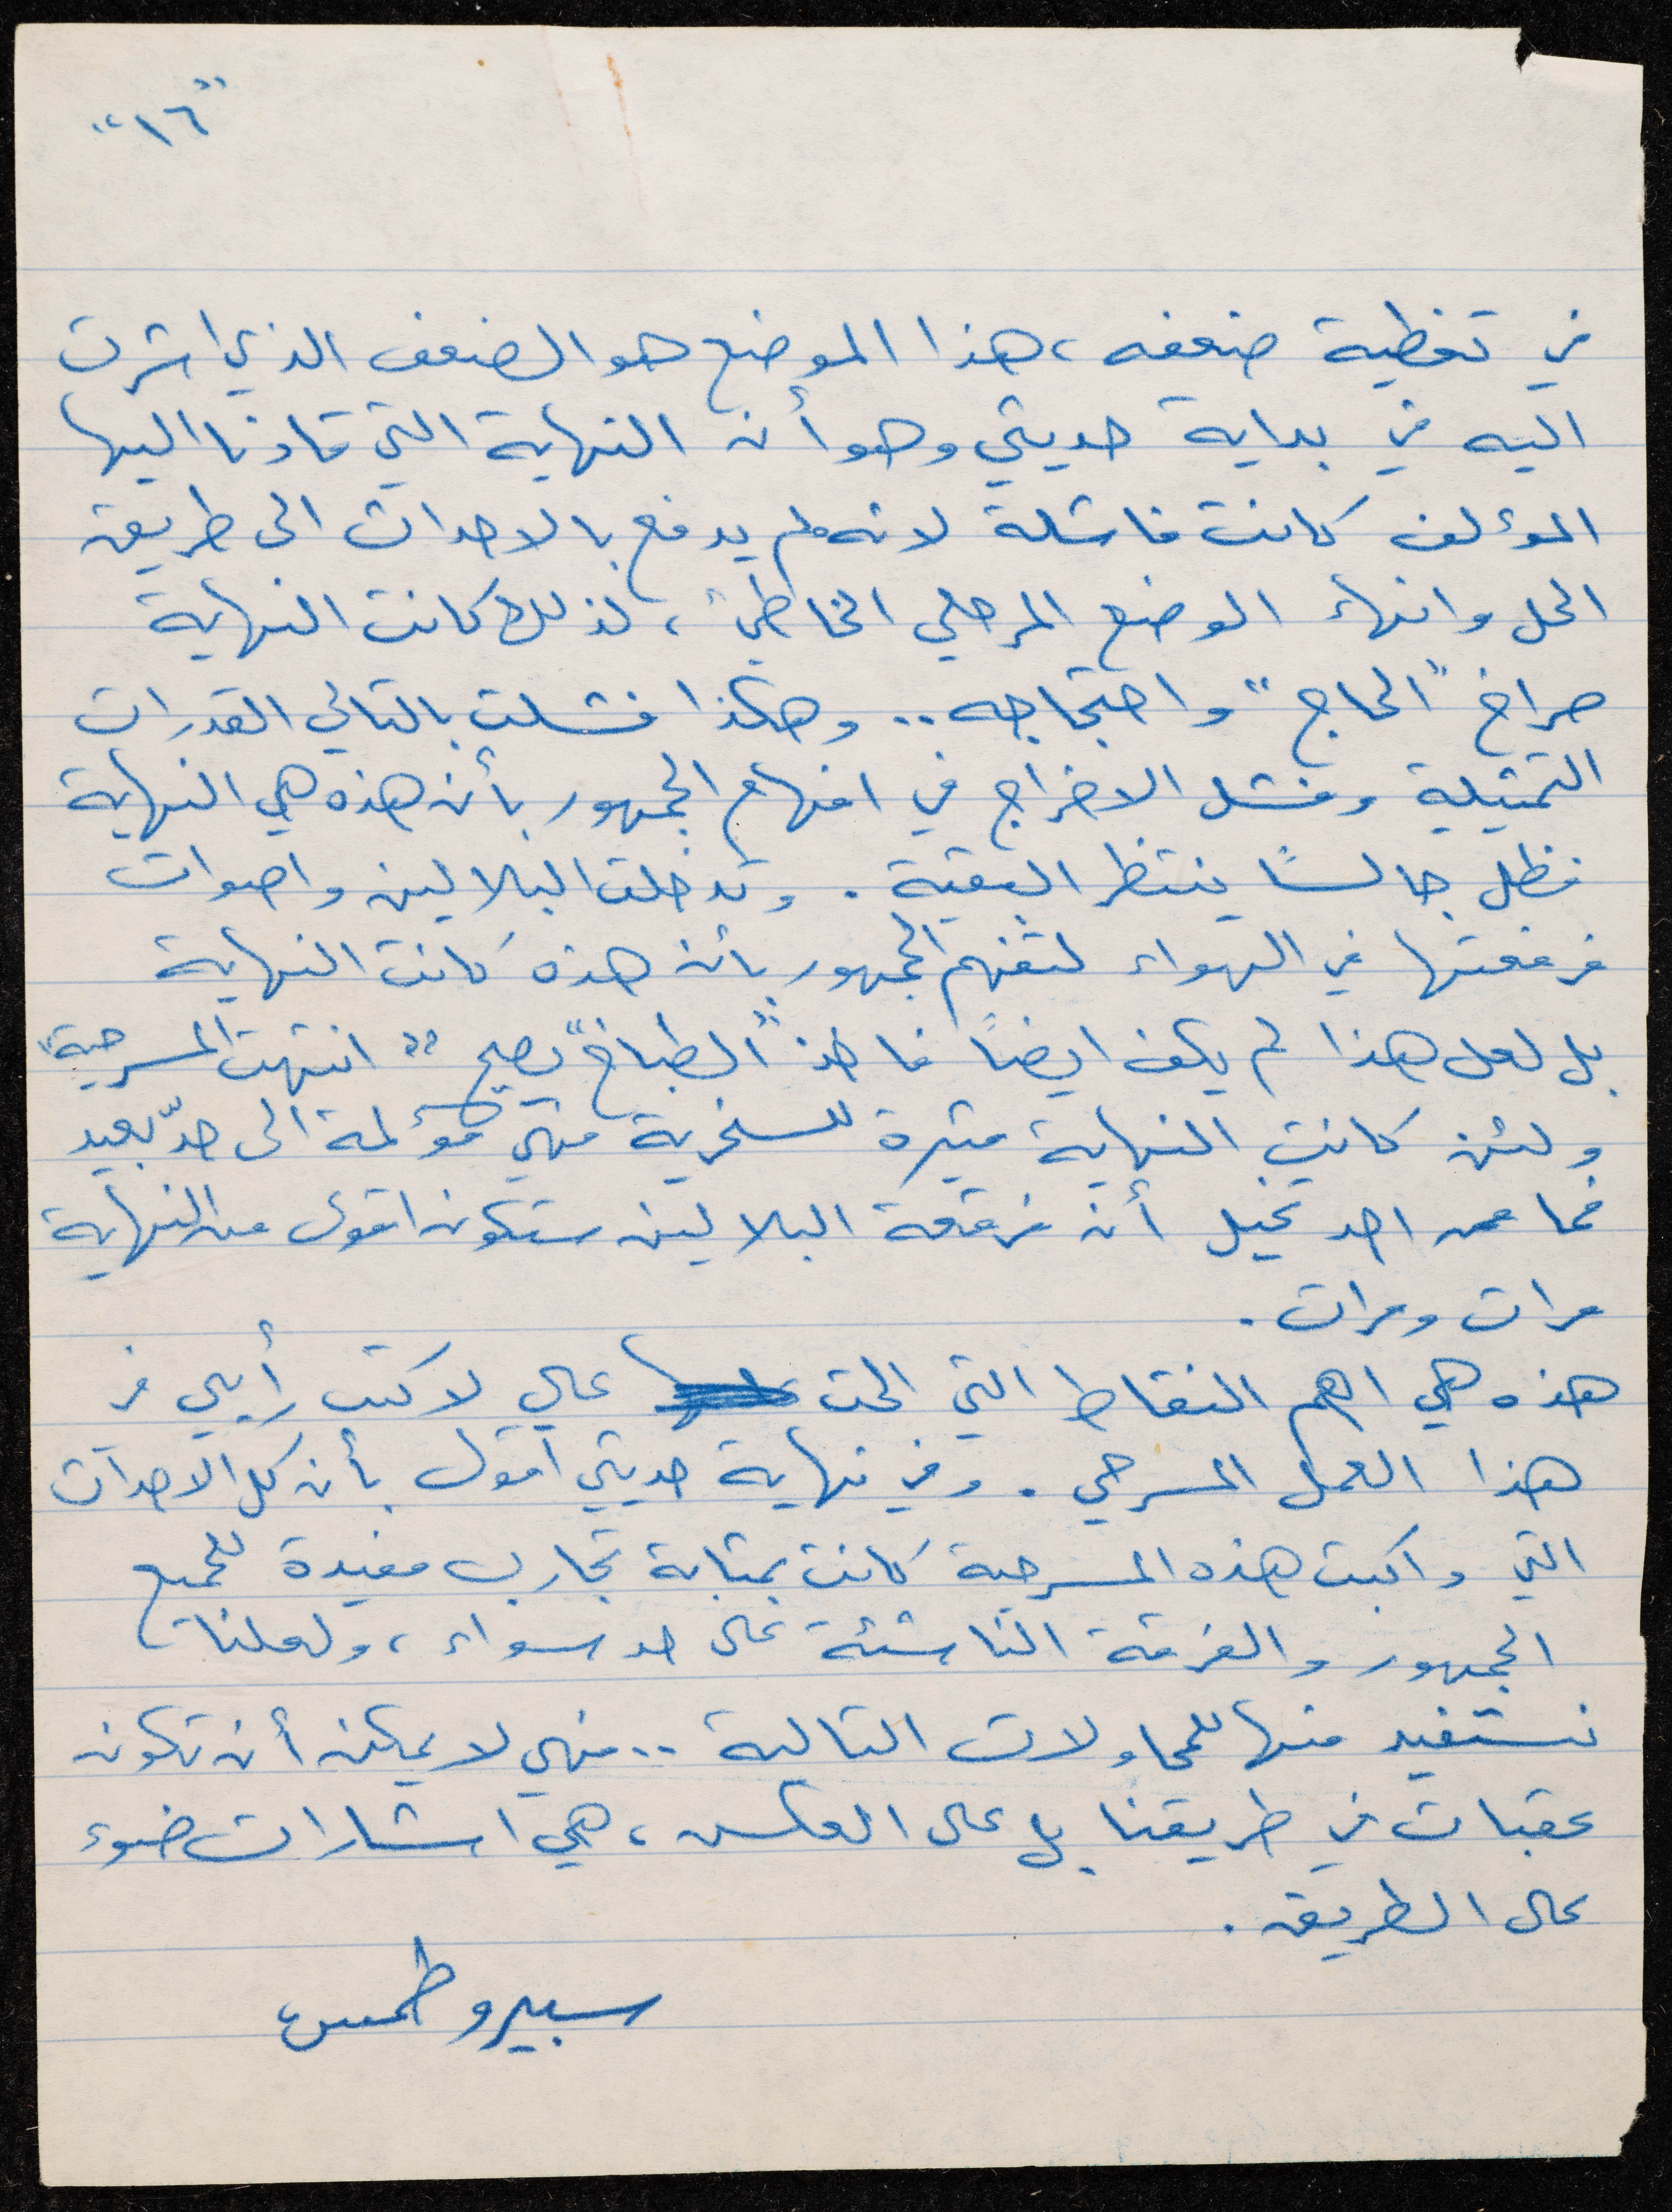 "١٦"
في تغطية ضعفه، هذا الموضع هو الضعف الذي اشرت
اليه في بداية حديثي وهو أن النهاية التي قادنا اليها
المؤلف كانت فاشلة لانه لم يدفع بالاحداث الى طريق
الحل وانهاء الوضع المرحلي الخاطئ، لذلك كانت النهاية
صراخ "الحاج" واحتجاجه.. وهكذا فشلت بالتالي القدرات
التمثيلية وفشل الاخراج في افهام الجمهور بأن هذه هي النهاية
فظل جالسًا ينتظر البقية. وتدخلت البلالين واصوات
فرقعتها في الهواء لتفهم الجمهور بأن هذه كانت النهاية
بل لعل هذا لم يكف ايضًا فاخذ "الطباخ" يصيح "انتهت المسرحية"
ولئن كانت النهاية مثيرة للسخرية فهي مؤلمة الى حدّ بعيد
فما من احد تخيل أن فرقعة البلالين ستكون اقوى من النهاية
مرات ومرات.
هذه هي اهم النقاط التي الحت علي لاكتب رأيي في
هذا العمل المسرحي. وفي نهاية حديثي أقول بأن كل الاحداث
التي واكبت هذه المسرحية كانت بمثابة تجارب مفيدة للجميع
الجمهور والفرقة الناشئة على حد سواء، ولعلنا
نستفيد منها للمحاولات التالية.. فهي لا يمكن أن تكون
عقبات في طريقنا بل على العكس، هي اشارات ضوء
على الطريق.
سبيرو طمس